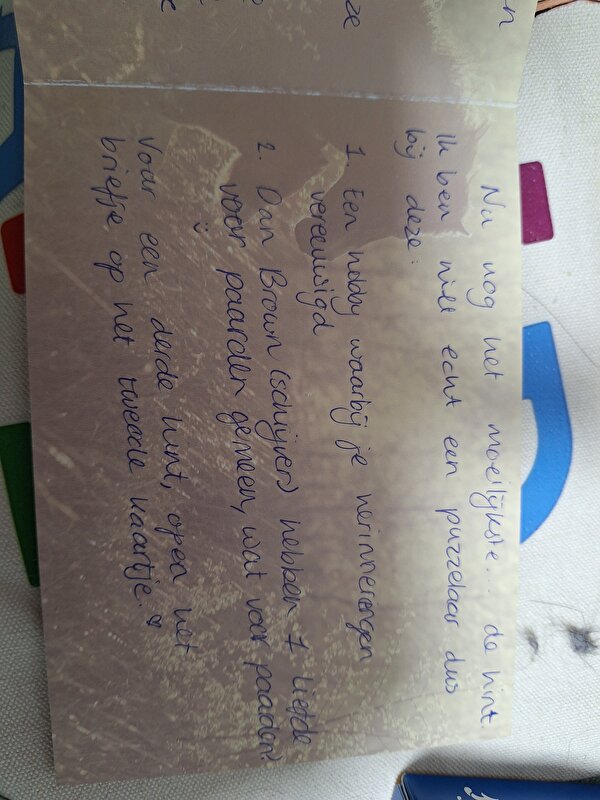 ze
Nu nog het moeilijkste.. de hint.
Ik ben niet echt een puzzelaar dus
bij deze:
1. Een hobby waarbij je herinnerengen
vereeuwigd
2. Dan Brown (schijver) hebben 1 liefde
voor paarden gemeen, wat voor paarden?
Voor een derde hint, open het
briefje op het tweede kaartje. ♡